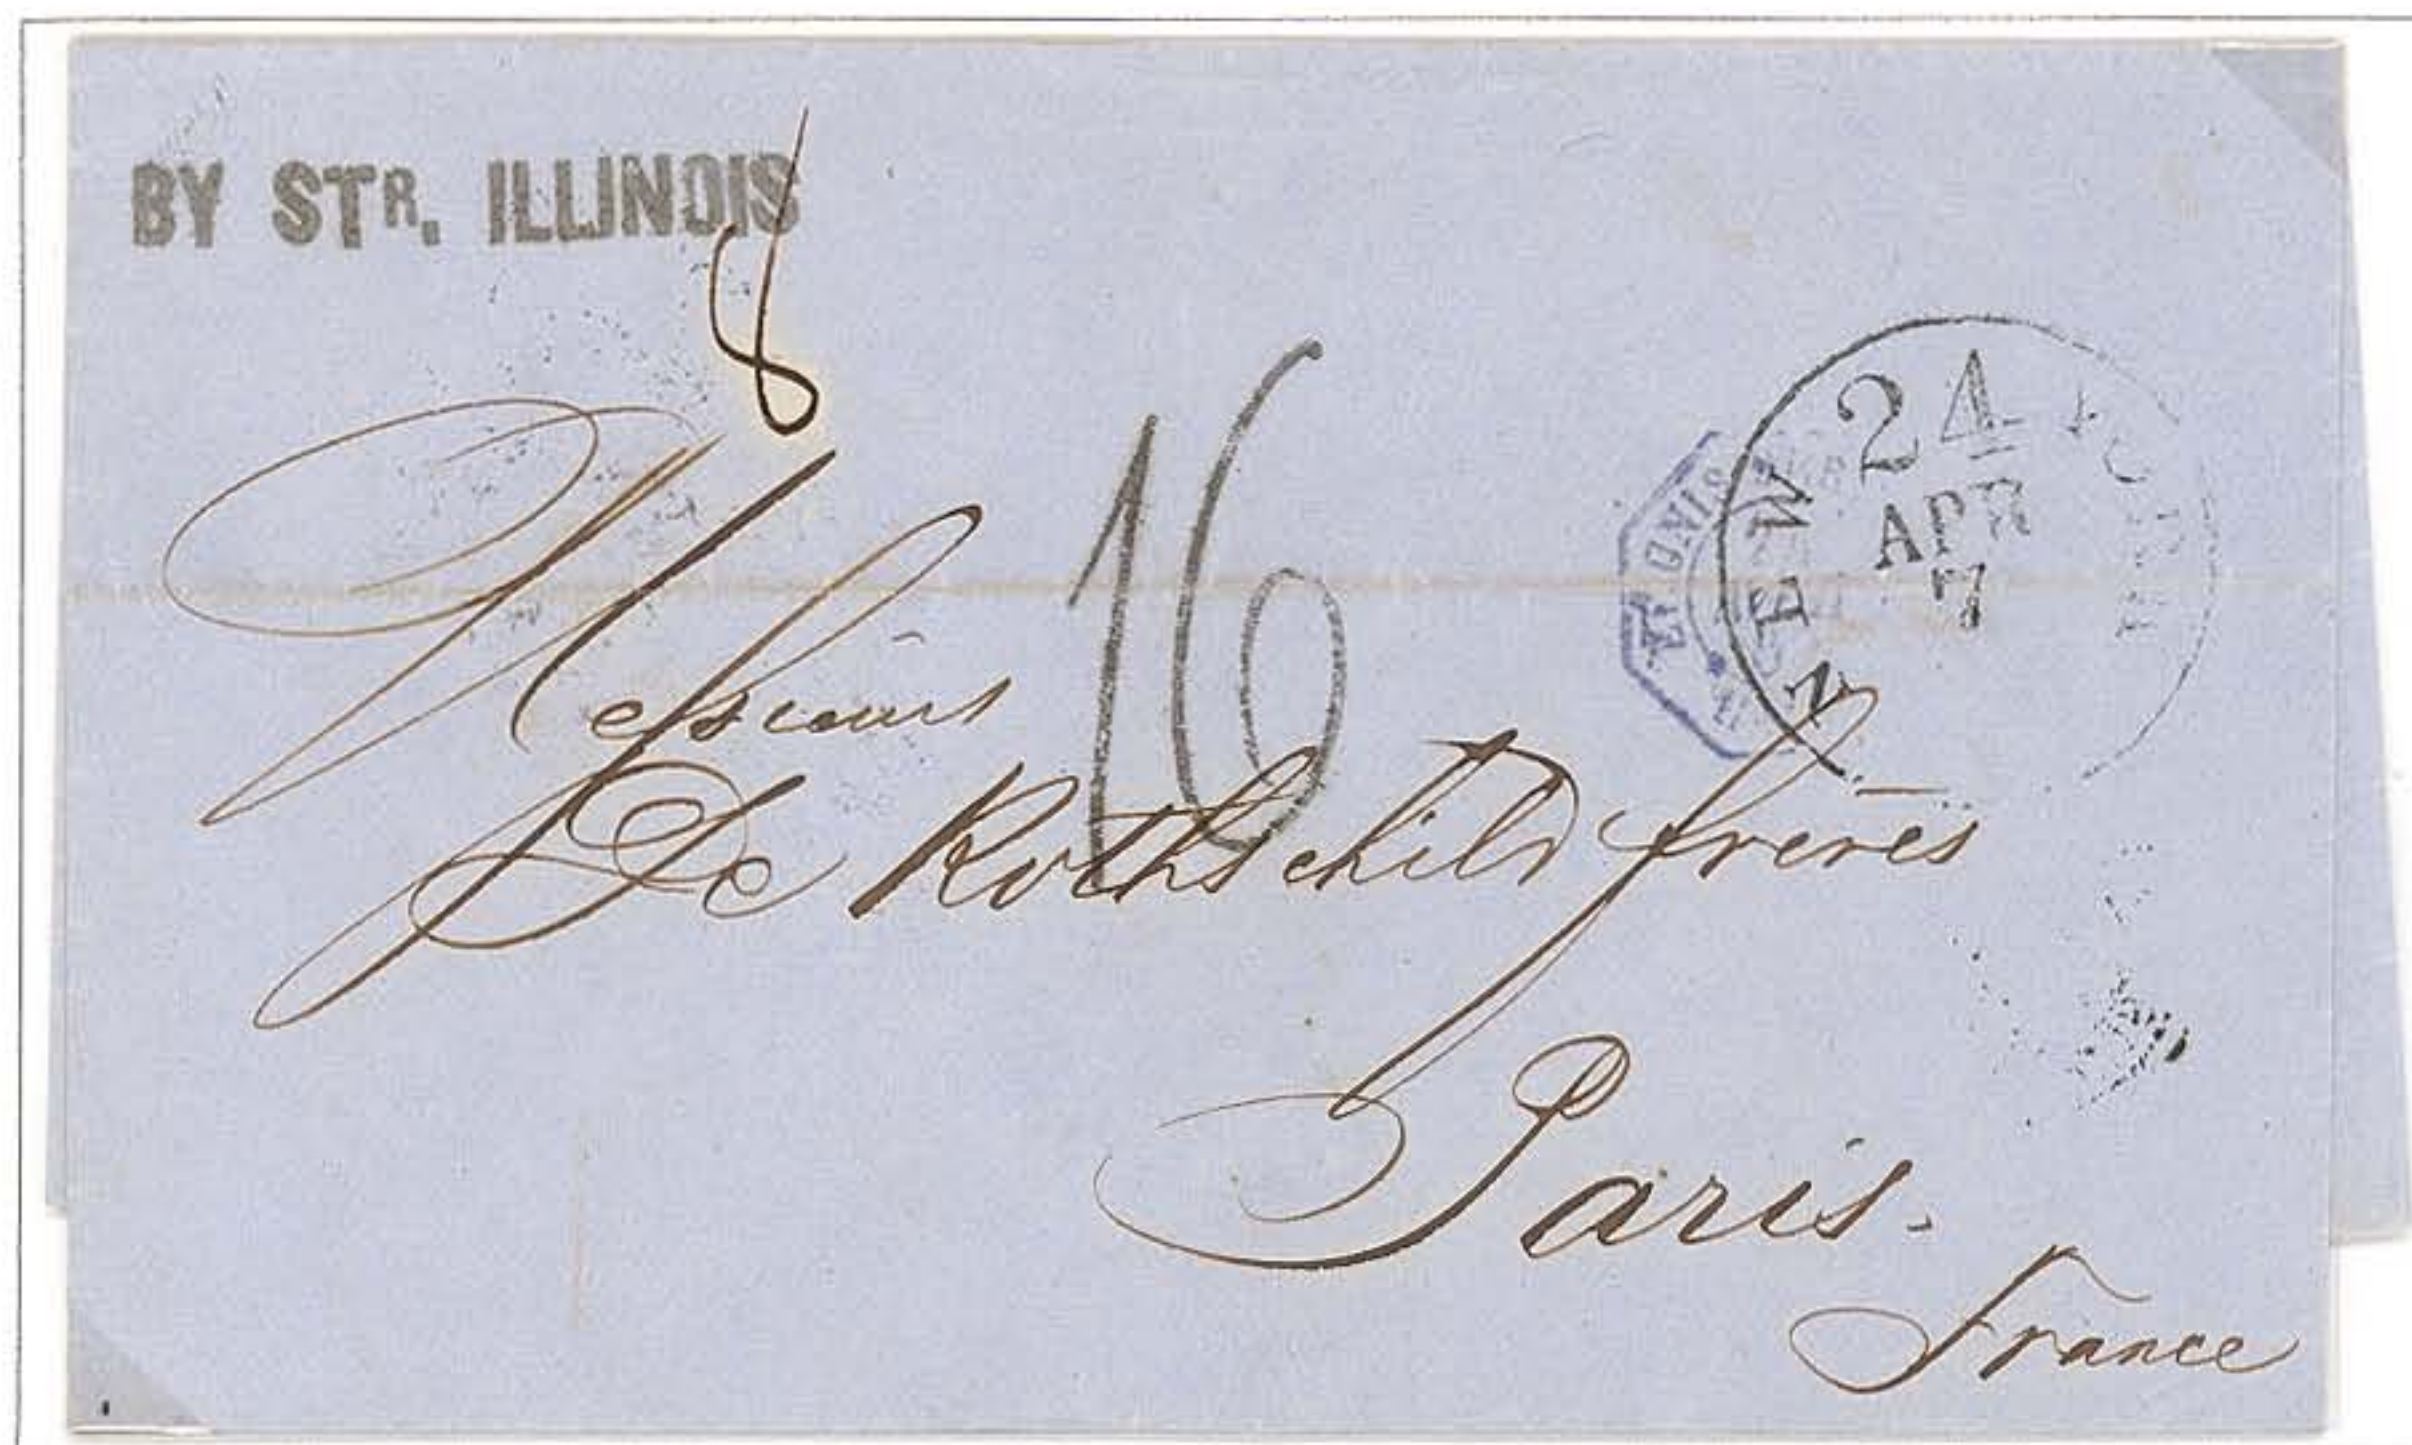 BY STR. ILLINOIS
8
16
24
NEW YORK
APR
7
Messieurs
De Rothschild frères
Paris.
France